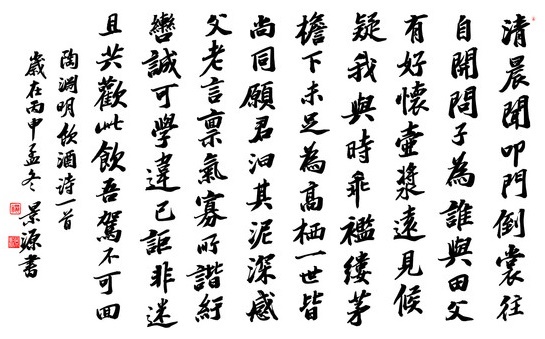 清晨聞叩門倒裳往
自開問子為誰與田父
有好懷壺漿遠見候
疑我與時乖襤缕茅
檐下未足為高栖一世皆
尚同願君汩其泥深感
父老言稟氣寡所諧紆
轡誠可學違己詎非迷
且共歡此飲吾駕不可回
陶淵明飲酒诗一首
歲在丙申孟冬 景源書